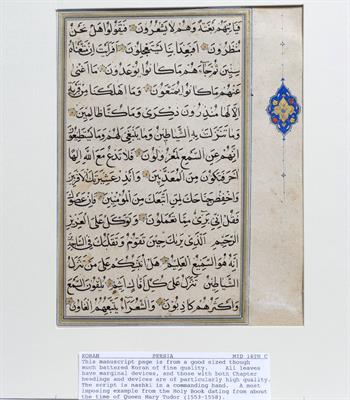 فَيَأْتِيَهُمْ بَغْتَةً وَهُمْ لَا يَشْعُرُونَ فَيَقُولُوا هَلْ نَحْنُ
مُنْظَرُونَ أَفَبِعَذَابِنَا يَسْتَعْجِلُونَ أَفَرَأَيْتَ إِنْ مَتَّعْنَاهُمْ
سِنِينَ ثُمَّ جَاءَهُمْ مَا كَانُوا يُوعَدُونَ مَا أَغْنَى
عَنْهُمْ مَا كَانُوا يُمَتَّعُونَ وَمَا أَهْلَكْنَا مِنْ قَرْيَةٍ
إِلَّا لَهَا مُنْذِرُونَ ذِكْرَى وَمَا كُنَّا ظَالِمِينَ
وَمَا تَنَزَّلَتْ بِهِ الشَّيَاطِينُ وَمَا يَنْبَغِي لَهُمْ وَمَا يَسْتَطِيعُونَ
إِنَّهُمْ عَنِ السَّمْعِ لَمَعْزُولُونَ فَلَا تَدْعُ مَعَ اللَّهِ إِلَهًا
آخَرَ فَتَكُونَ مِنَ الْمُعَذَّبِينَ وَأَنْذِرْ عَشِيرَتَكَ الْأَقْرَبِينَ
وَاخْفِضْ جَنَاحَكَ لِمَنِ اتَّبَعَكَ مِنَ الْمُؤْمِنِينَ فَإِنْ عَصَوْكَ
فَقُلْ إِنِّي بَرِيءٌ مِمَّا تَعْمَلُونَ وَتَوَكَّلْ عَلَى الْعَزِيزِ
الرَّحِيمِ الَّذِي يَرَاكَ حِينَ تَقُومُ وَتَقَلُّبَكَ فِي السَّاجِدِينَ
إِنَّهُ هُوَ السَّمِيعُ الْعَلِيمُ هَلْ أُنَبِّئُكُمْ عَلَى مَنْ تَنَزَّلُ
الشَّيَاطِينُ تَنَزَّلُ عَلَى كُلِّ أَفَّاكٍ أَثِيمٍ يُلْقُونَ السَّمْعَ
وَأَكْثَرُهُمْ كَاذِبُونَ وَالشُّعَرَاءُ يَتَّبِعُهُمُ الْغَاوُونَ
KORAN PERSIA MID 16TH C
This manuscript page is from a good sized though
much battered Koran of fine quality. All leaves
have marginal devices, and those with both Chapter
headings and devices are of particularly high quality.
The script is mashki in a commanding hand. A most
imposing example from the Holy Book dating from about
the time of Queen Mary Tudor (1553-1558).